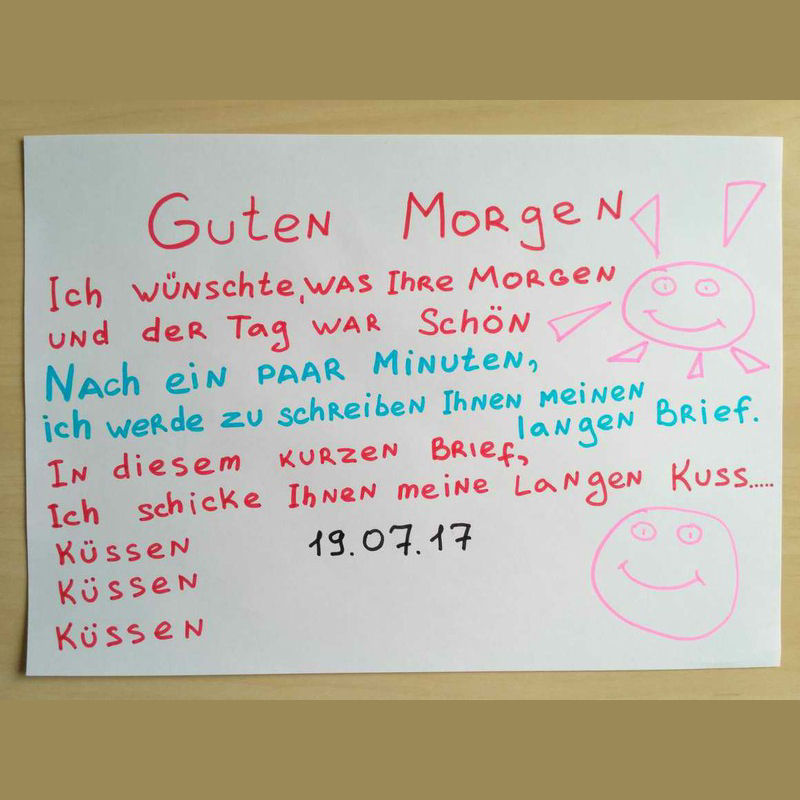 Guten Morgen
Ich wünschte, was Ihre Morgen
und der Tag war schön
Nach ein paar Minuten,
ich werde zu schreiben Ihnen meinen
langen Brief.
In diesem kurzen Brief,
Ich schicke Ihnen meine langen Kuss.....
Küssen
19.07.17
Küssen
Küssen